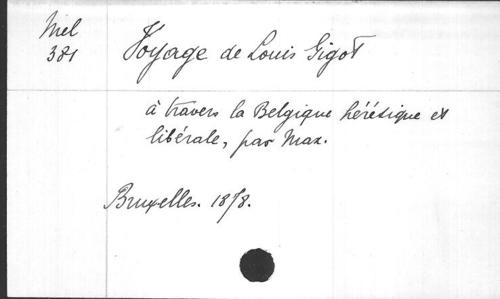 Mel
381
Voyage de Louis Gigot
à travers la Belgique hérétique et
libérale, par Max.
Bruxelles. 1878.